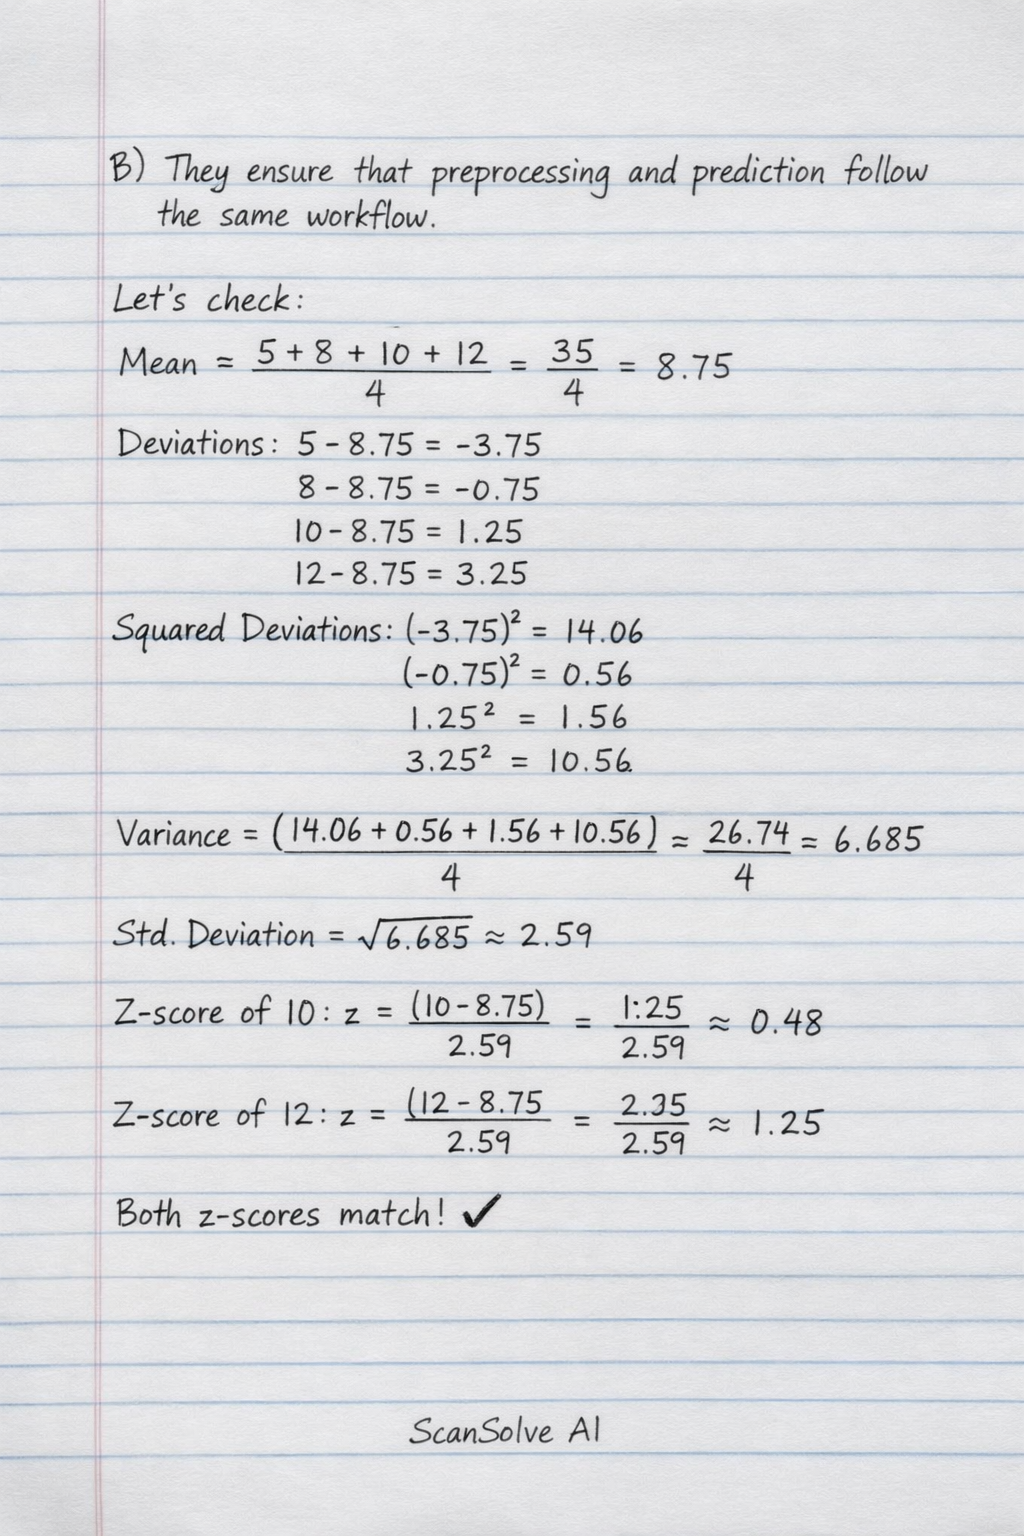 B) They ensure that preprocessing and prediction follow
the same workflow.
Let's check:
Mean = (5 + 8 + 10 + 12)/4 = 35/4 = 8.75
Deviations: 5 - 8.75 = -3.75
8 - 8.75 = -0.75
10 - 8.75 = 1.25
12 - 8.75 = 3.25
Squared Deviations: (-3.75)² = 14.06
(-0.75)² = 0.56
1.25² = 1.56
3.25² = 10.56.
Variance = (14.06 + 0.56 + 1.56 + 10.56)/4 ≈ 26.74/4 = 6.685
Std. Deviation = √6.685 ≈ 2.59
Z-score of 10: z = (10 - 8.75)/2.59 = 1:25/2.59 ≈ 0.48
Z-score of 12: z = (12 - 8.75/2.59 = 2.35/2.59 ≈ 1.25
Both z-scores match! ✓
ScanSolve AI